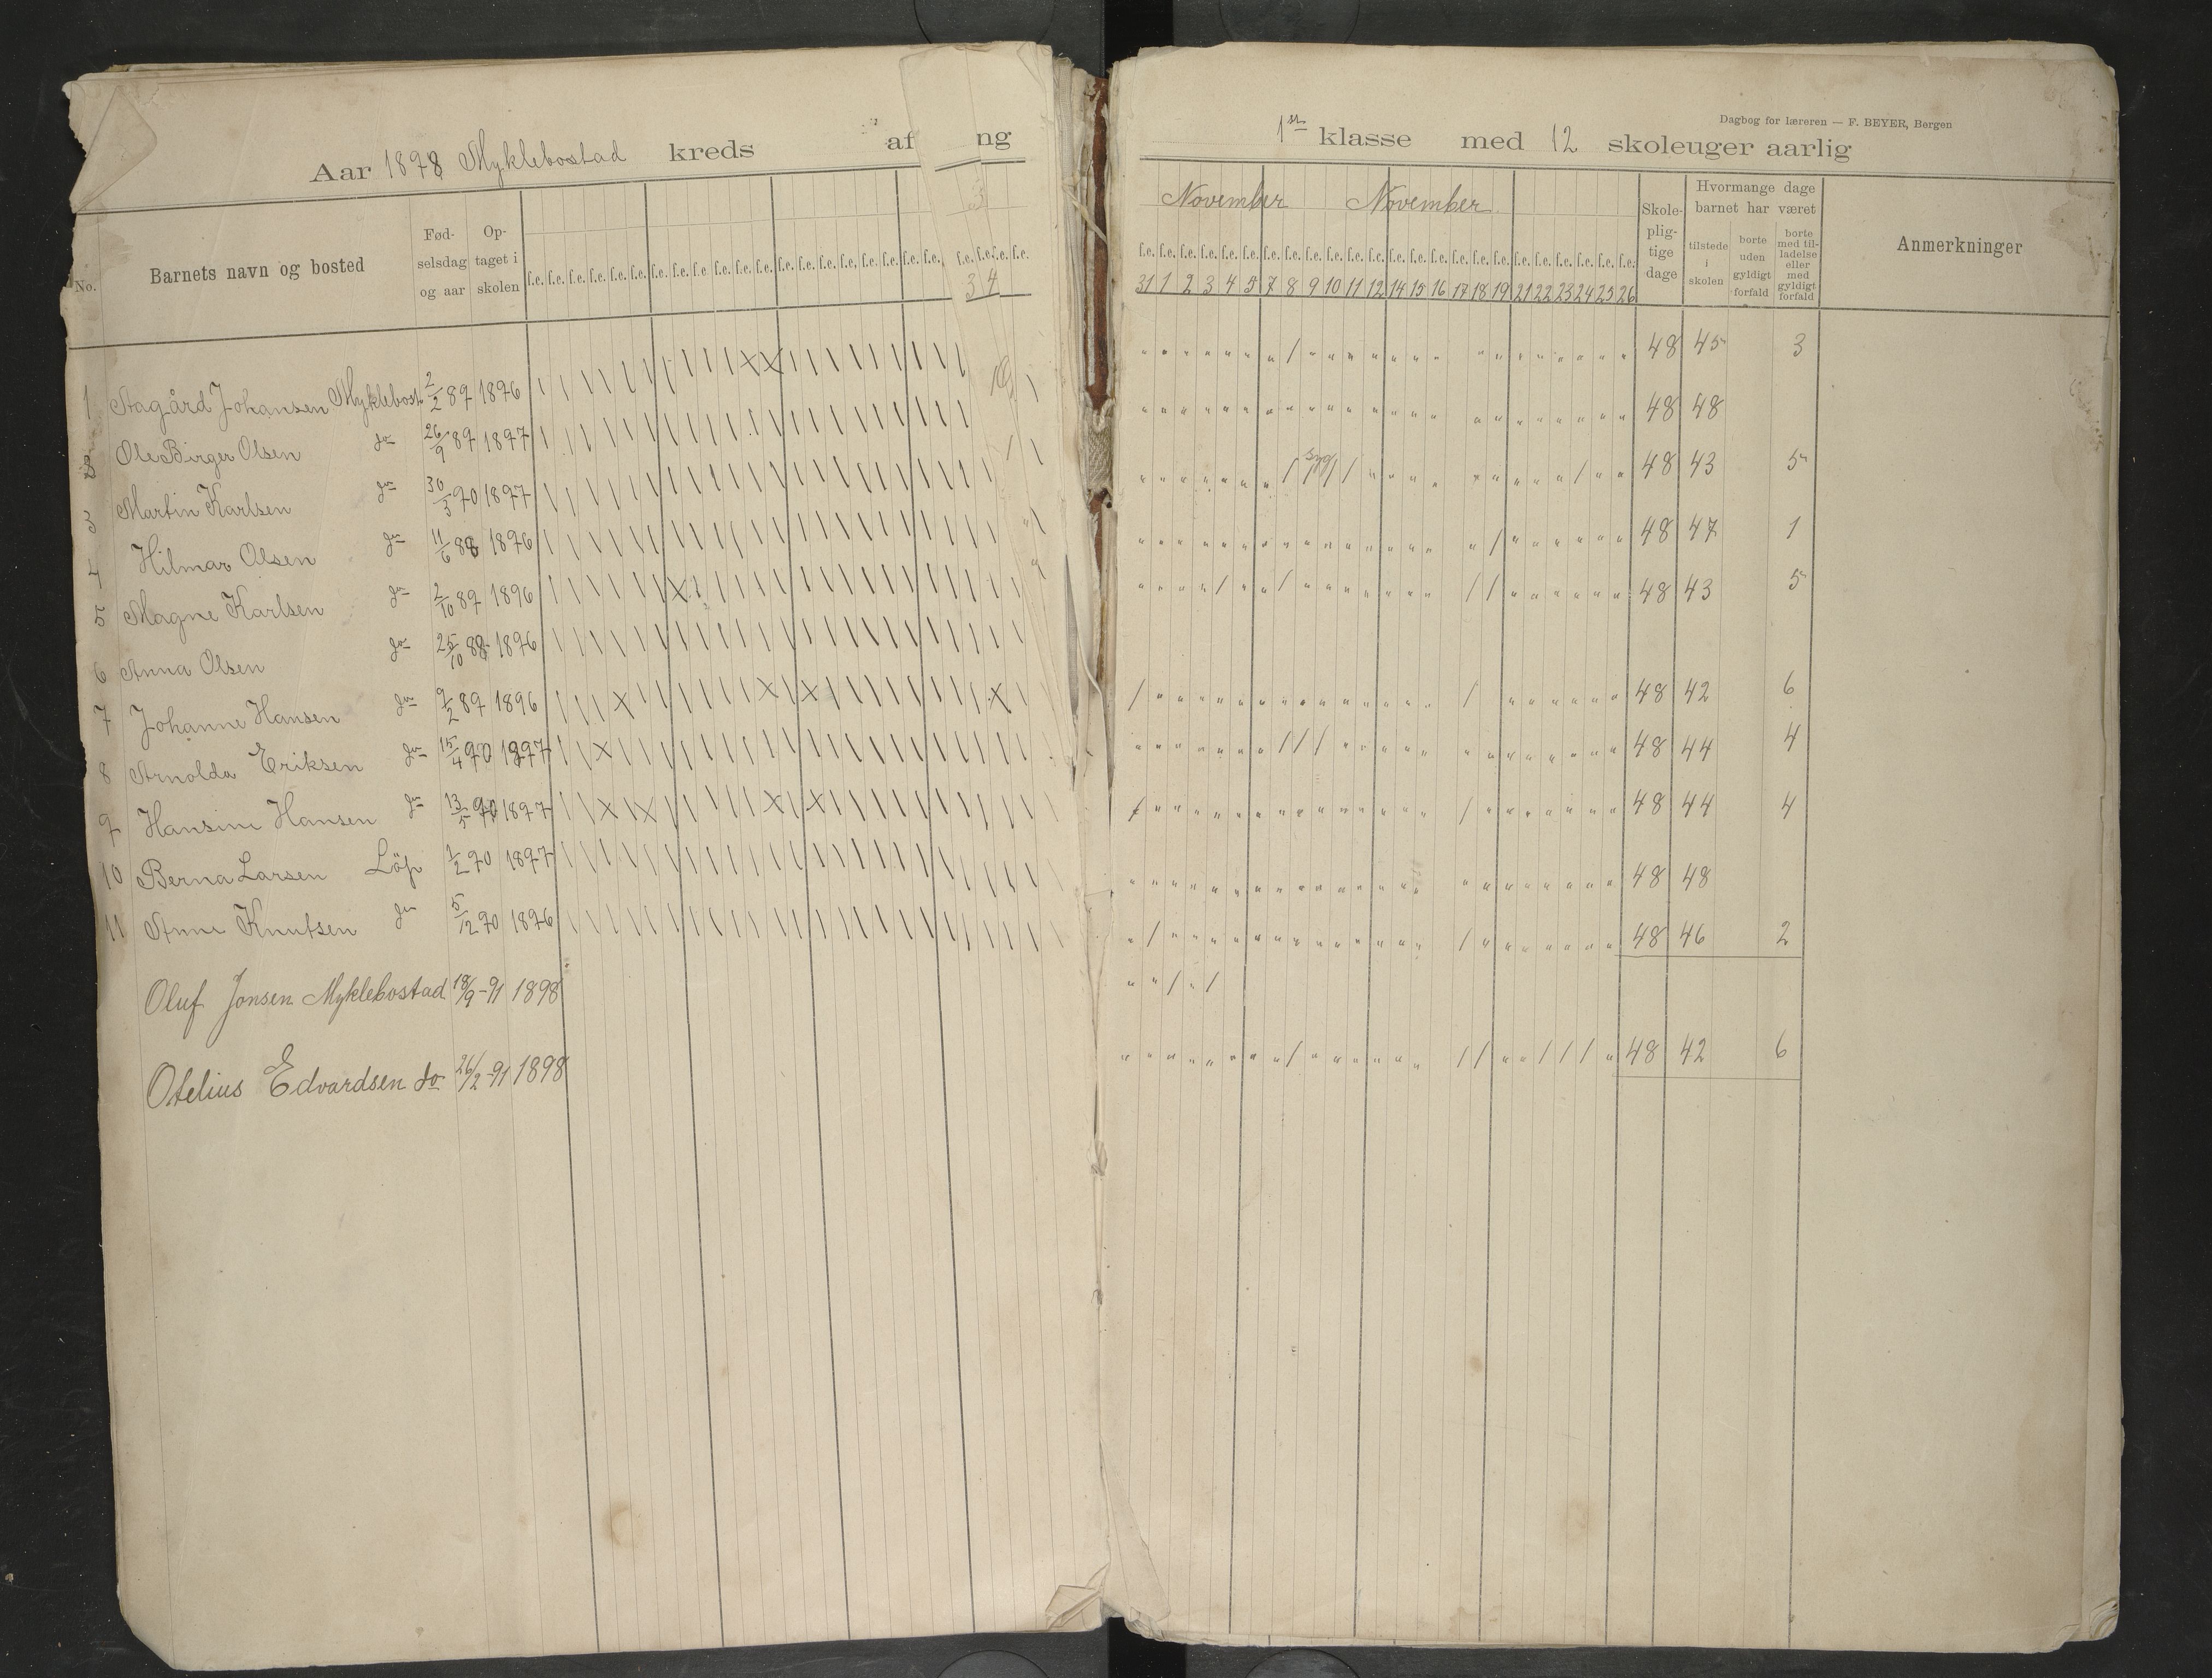 Aar 1898 Myklebostad kreds af ng
No. Barnets navn og bosted Fød-selsdag og aar Op-taget i skolen f.e. f.e. f.e. f.e. f.e. f.e. f.e. f.e. f.e. f.e. f.e. f.e. f.e. f.e. f.e. f.e. f.e. f.e. f.e. f.e. f.e. f.e. f.e. f.e.
3 4
1 Aagård Johansen Myklebost. 2/2 89 1896
2 Ole Birger Olsen do 26/9 89 1897
3 Martin Karlsen do 30/3 90 1897
4 Hilmar Olsen do 11/6 88 1896
5 Magne Karlsen do 2/10 89 1896
6 Anna Olsen do 25/10 88 1896
7 Johanne Hansen do 9/2 89 1896
8 Arnolda Eriksen do 15/4 90 1897
9 Hansine Hansen do 13/5 90 1897
10 Berna Larsen Löp 1/2 90 1897
11 Anne Knutsen do 5/12 90 1896
Oluf Jonsen Myklebostad 18/9-91 1898
Otelius Edvardsen do 26/2-91 1898
Dagbog for læreren — F. BEYER, Bergen
1ste klasse med 12 skoleuger aarlig
November November
Skole-plig-tige dage
Hvormange dage barnet har været
tilstede i skolen
borte uden gyldigt forfald
borte med til-ladelse eller med gyldigt forfald
Anmerkninger
f.e. f.e. f.e. f.e. f.e. f.e. f.e. f.e. f.e. f.e. f.e. f.e. f.e. f.e. f.e. f.e. f.e. f.e. f.e. f.e. f.e. f.e. f.e. f.e.
31 1 2 3 4 5 7 8 9 10 11 12 14 15 16 17 18 19 21 22 23 24 25 26
48 45 3
48 48
syg 48 43 5
48 47 1
48 43 5
48 42 6
48 44 4
48 44 4
48 48
48 46 2
48 42 6